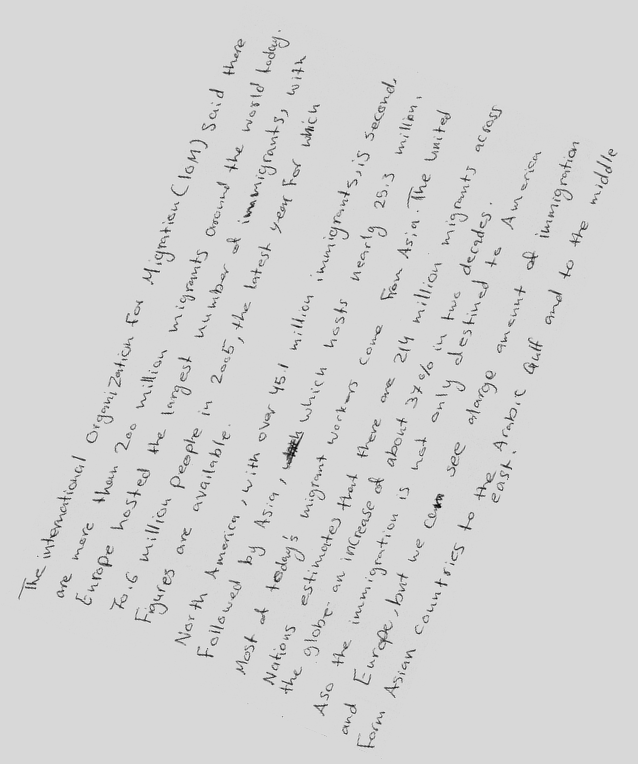 The international Organization for Migration (IOM) Said there
are more than 200 million migrants around the world today.
Europe hosted the largest number of immigrants, with
70.6 million People in 2005, the latest year For which
Figures are available.
North America, with over 45.1 million immigrants, is second,
Followed by Asia, which hosts nearly 25.3 million.
Most of today's migrant workers come From Asia. The United
Nations estimates that there are 214 million migrants across
the globe. an increase of about 37% in two decades.
Aso the immigration is not only destined to America
and Europe, but we can see alarge amount of immigration
Form Asian countries to the Arabic Gulf and to the middle
east.